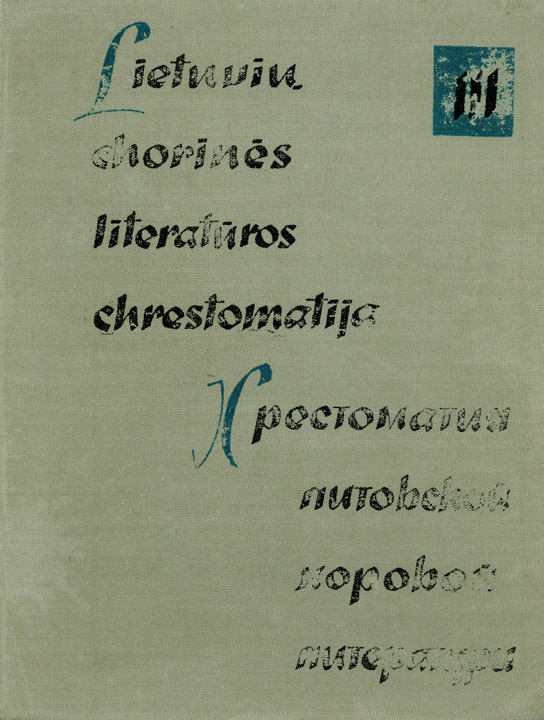 Lietuvių
III
chorinės
literatūros
chrestomatija
Хрестоматия
литовской
хоровой
литературы